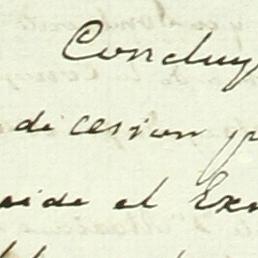 Concluy
de cesion p
side el Exm